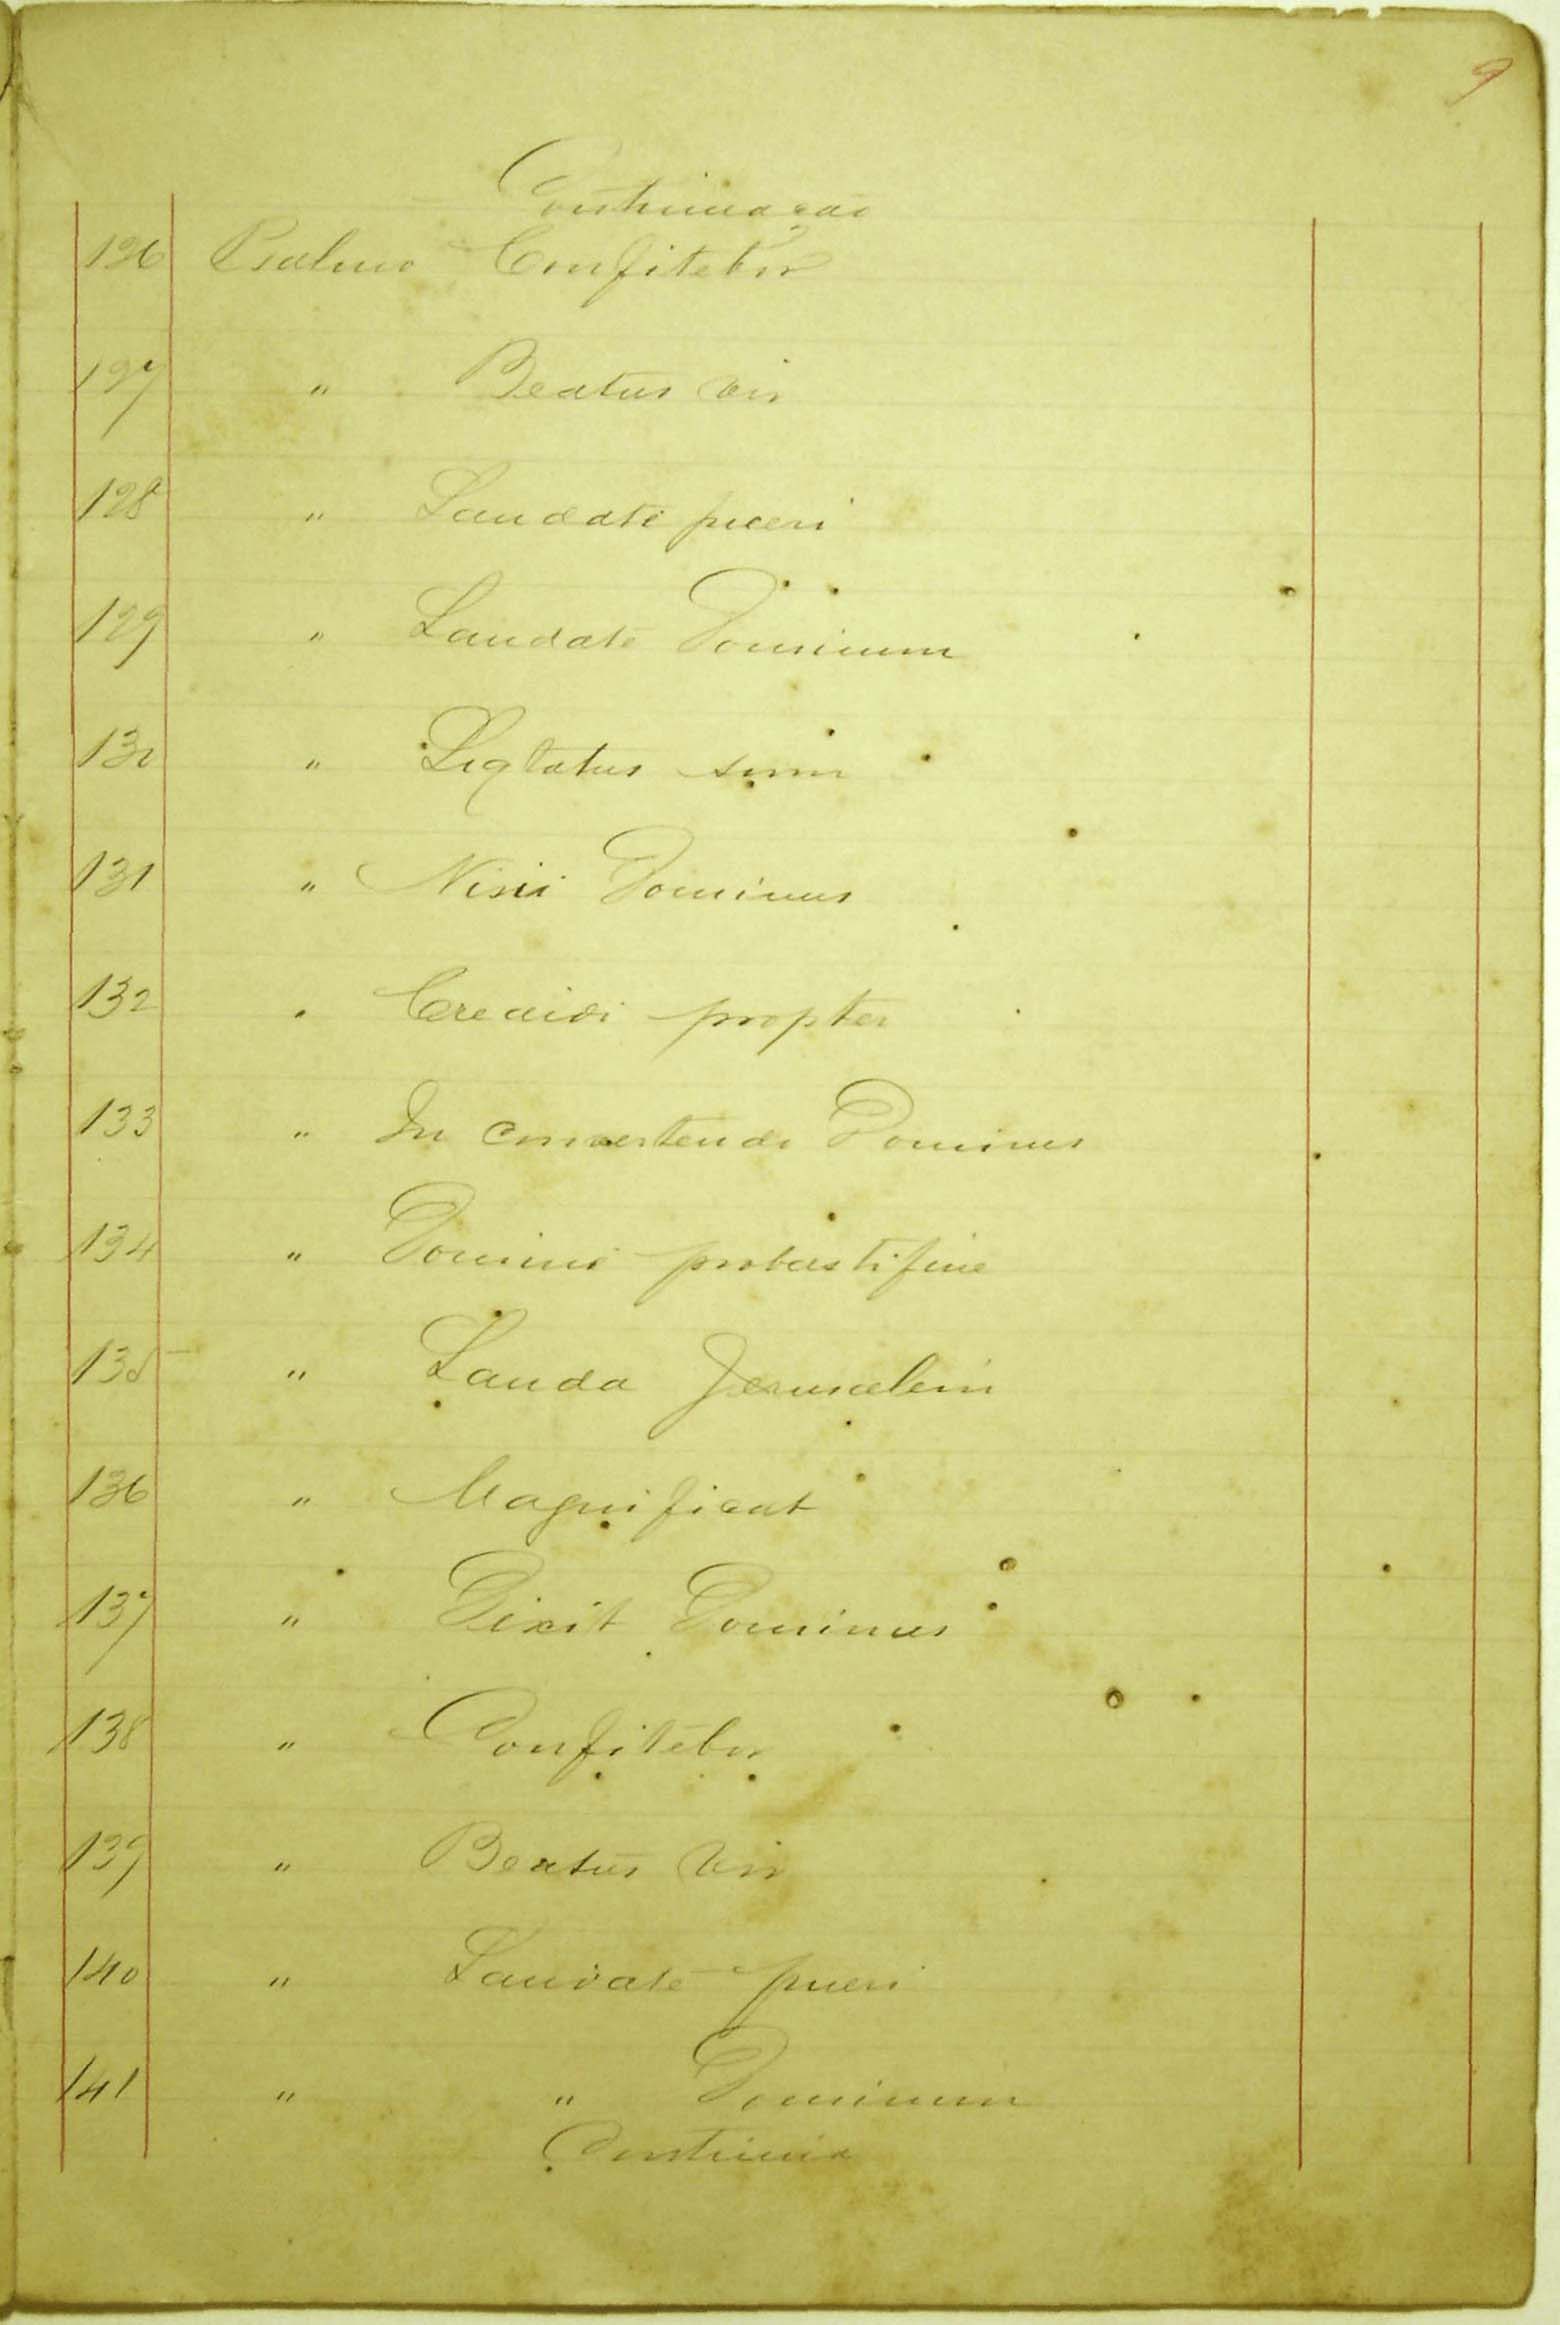 9
Continuação
126 Psalmo Confitebor
127 " Beatus Vir
128 " Laudate pueri
129 " Laudate Dominum
130 " Leqtatus sum
131 " Nisii Dominus
132 " Credidi propter
133 " In convertendo Dominus
134 " Domine probasti fine
135 " Lauda Jerusalem
136 " Magnificat
137 " Dixit Dominus
138 " Confitebor
139 " Beatus Vir
140 " Laudate pueri
141 " " Dominum
Continúa